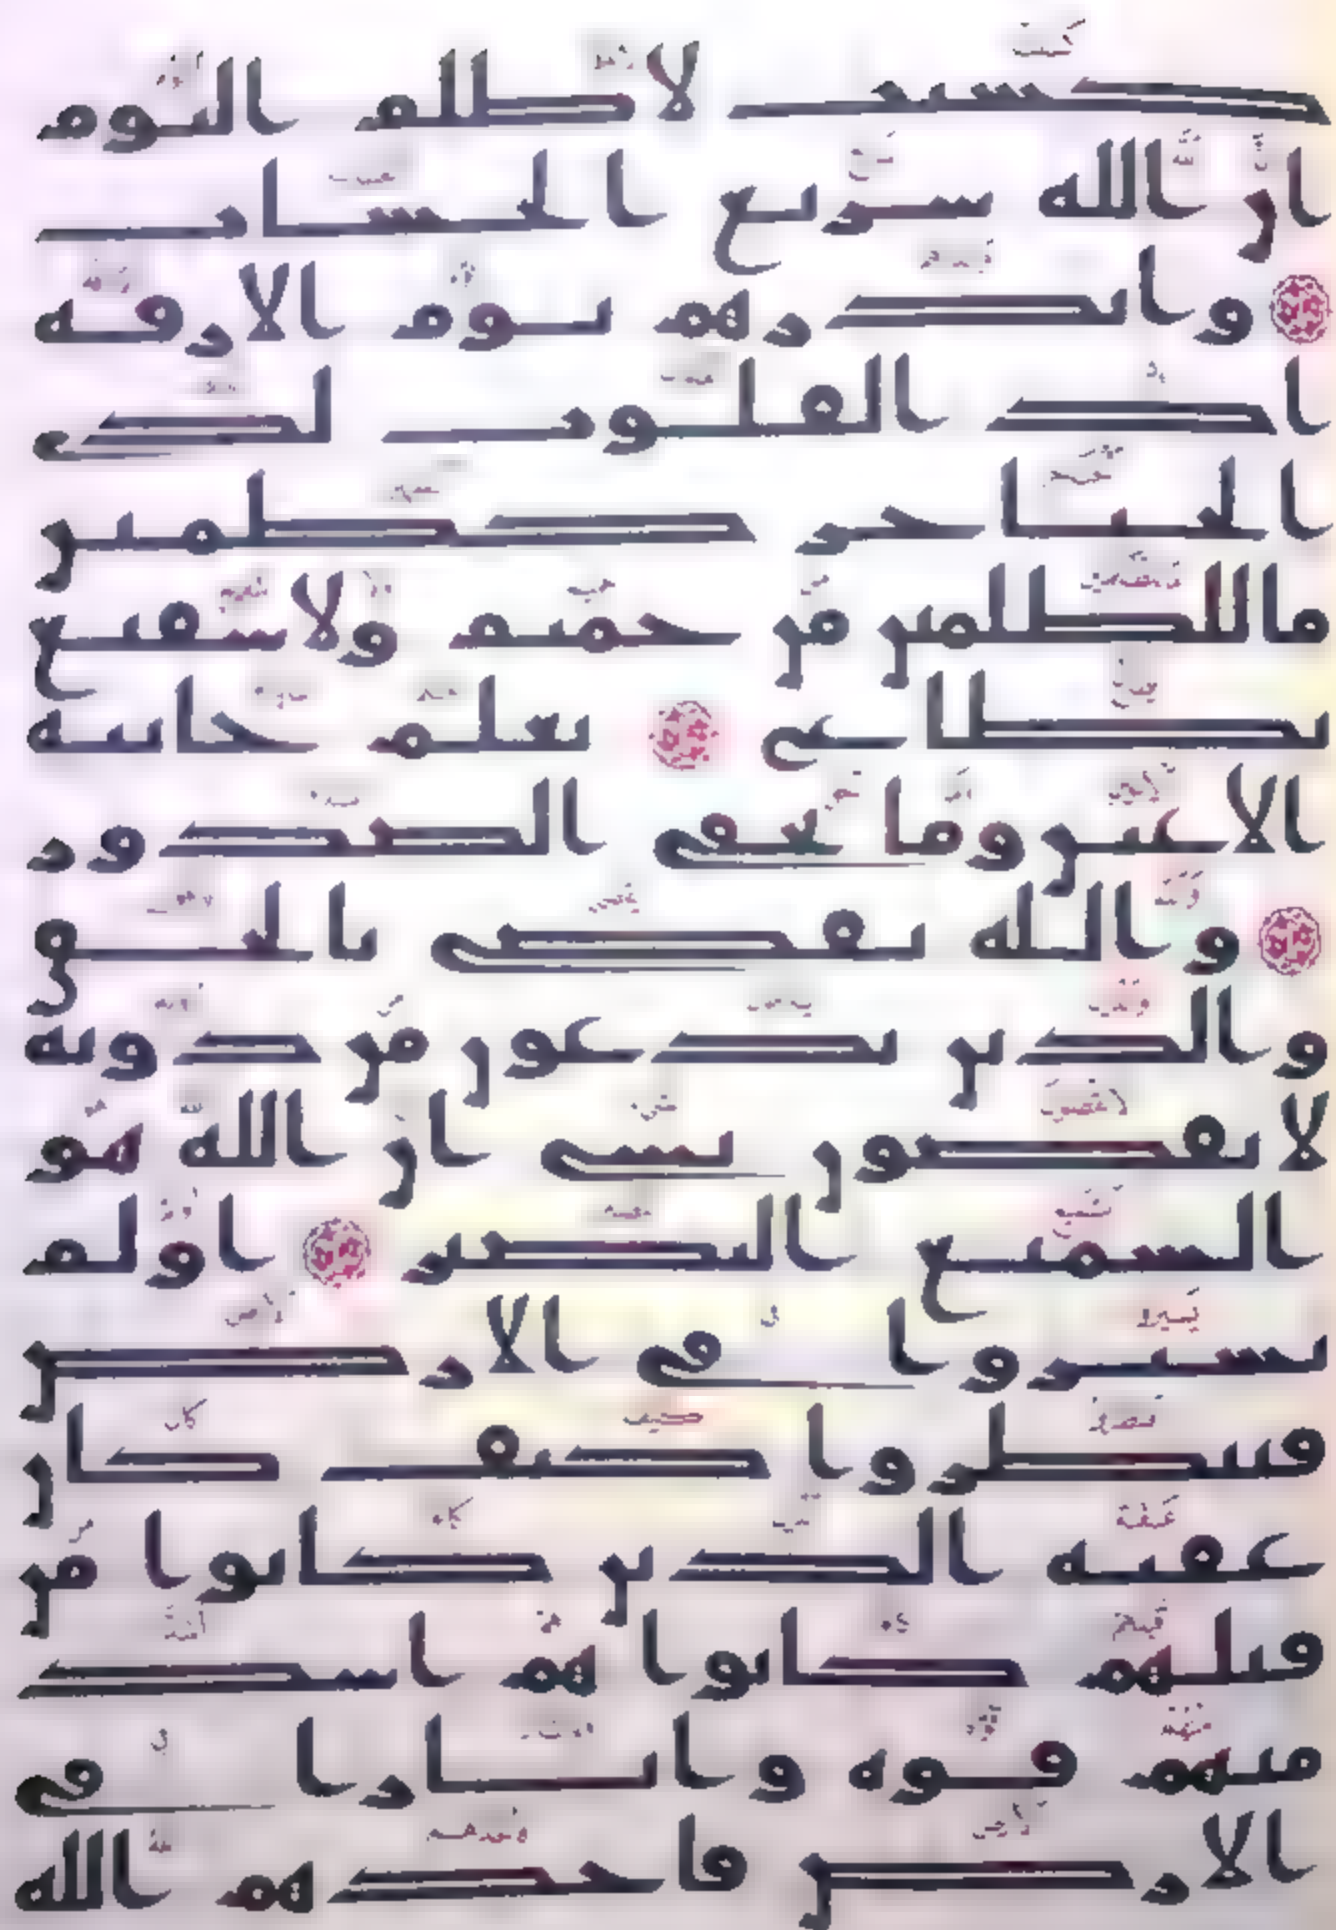 كسبت لا ظلم اليوم
ان الله سريع الحساب
وانذرهم يوم الازفة
اذ القلوب لدى
الحناجر كظمين
ما للظلمين من حميم ولا شفيع
يطاع يعلم خاينة
الاعين وما تخفى الصدور
والله يقضى بالحق
والذين يدعون من دونه
لا يقضون بشى ان الله هو
السميع البصير اولم
يسيروا فى الارض
فينظروا كيف كان
عقبة الذين كانوا من
قبلهم كانوا هم اشد
منهم قوة واثارا فى
الارض فاخذهم الله